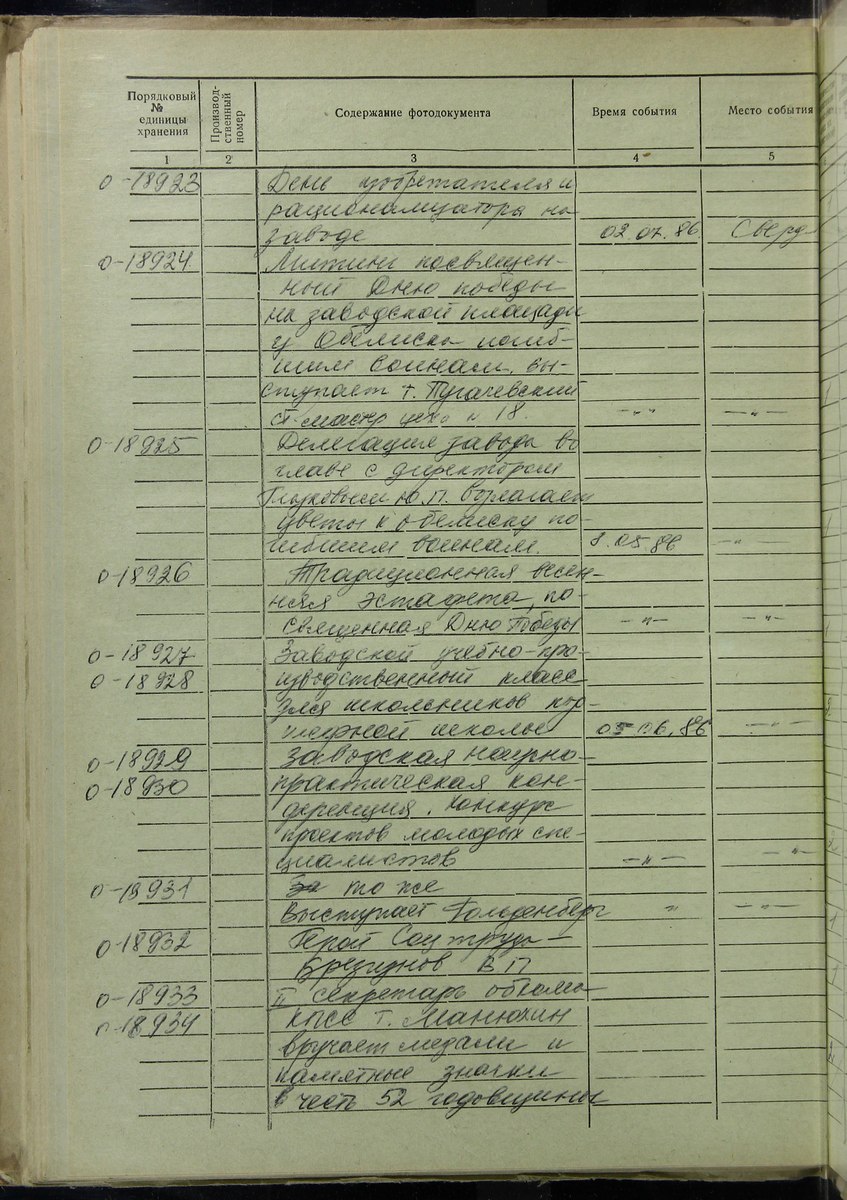 Порядковый № единицы хранения
Производственный номер
Содержание фотодокумента
Время события
Место события
1 2 3 4 5
0-18923 День изобретателя и
рационализатора на
заводе 02.07.86 Сверд
0-18924 Митинг посвящен-
ный Дню победы
на заводской площади
у Обелиска погиб-
шим воинам. Вы-
ступает т. Пугачевский
ст. мастер цеха № 18. -"- -"-
0-18925 Делегация завода во
главе с директором
Глазковым Ю.П. возлагает
цветы к обелиску по-
гибшим воинам. 8.05.86 -"-
0-18926 Традиционная весен-
няя эстафета, по-
священная Дню Победы -"- -"-
0-18927 Заводской учебно-про-
0-18928 изводственный класс
для школьников под-
шефной школы 05.06.86 -"-
0-18929 Заводская научно-
0-18930 практическая кон-
ференция. Конкурс
проектов молодых спе-
циалистов -"- -"-
0-18931 то же
Выступает Гольденберг " -"-
0-18932 Герой Соц труда -
В П
0-18933 II секретарь обкома
0-18934 КПСС т. Манюхин
вручает медали и
памятные значки
в честь 52 годовщины